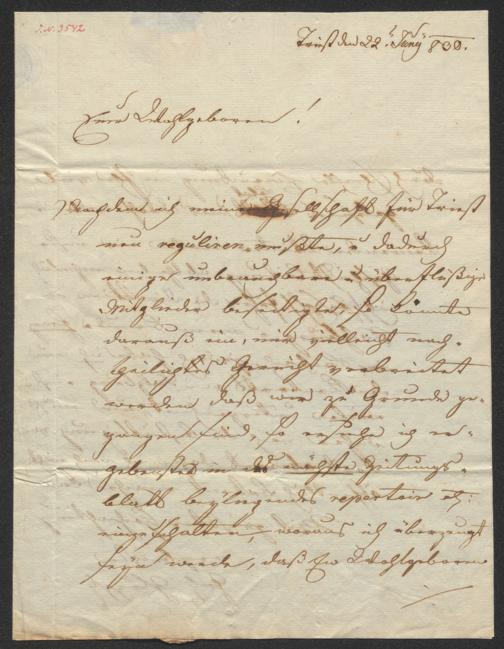 I.N. 3542
Triest den 22t Juny 830.
Euer Wohlgeboren!
Nachdem ich meine Gesellschaft für Triest
neu reguliren mußte, u dadurch
einige unbrauchbare u überflüßige
Mitglieder beseitigte, so könnte
darauß ein, mir vielleicht nach-
theiliges Gerücht verbreitet
werden, daß wir zu Grunde ge-
gangen sind, so ersuche ich er-
gebenst in das nächste Zeitungs-
blatt beyliegendes repertoir etz:
einzuschalten, woraus ich überzeugt
seyn werde, daß Ew Wohlgeboren